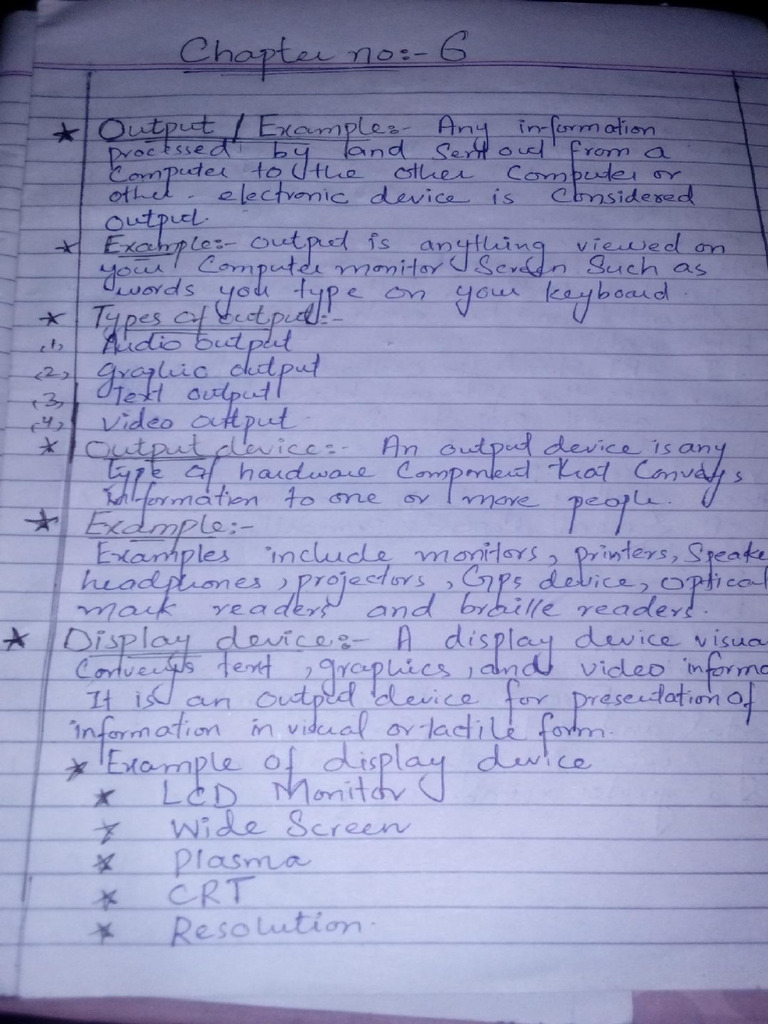 Chapter no:- 6
* Output / Example:- Any information
processed by and sent out from a
Computer to the other Computer or
other electronic device is Considered
output.
* Example:- output is anything viewed on
your Computer monitor Screen Such as
words you type on your keyboard.
* Types of output:-
(1) Audio output
(2) graphic output
(3) text output
(4) video output
* Output device:- An output device is any
type of hardware Component that Conveys
information to one or more people.
* Example:-
Examples include monitors, printers, Speake
headphones, projectors, Gps device, optical
mark readers and braille readers.
* Display device:- A display device visua
Conveys text, graphics, and video informa
It is an output device for presentation of
information in visual or tactile form.
* Example of display device
* LCD Monitor
* Wide Screen
* Plasma
* CRT
* Resolution.